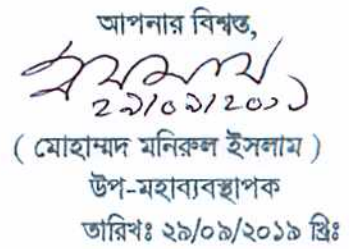 আপনার বিশ্বস্ত,
২৯/০৯/২০১৯
( মোহাম্মদ মনিরুল ইসলাম )
উপ-মহাব্যবস্থাপক
তারিখঃ ২৯/০৯/২০১৯ খ্রিঃ